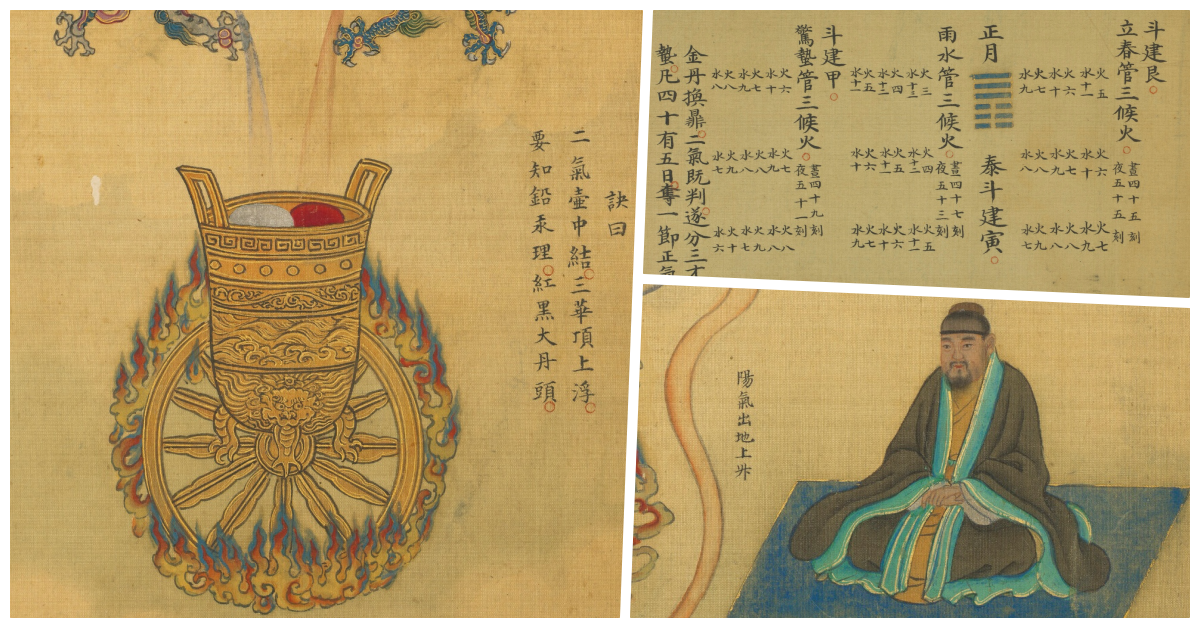 訣曰
二氣壺中結三華頂上浮
要知鉛汞理紅黑大丹頭
斗建艮
立春管三候火
晝四十五刻
夜五十五刻
火五
水十一
火六
水十
火七
水九
火六
水十
火七
水九
火八
水八
火七
水九
火八
水八
火九
水七
正月
泰斗建寅
雨水管三候火
晝四十七刻
夜五十三刻
火三
水十三
火四
水十二
火五
水十一
火四
水十二
火五
水十一
火六
水十
火五
水十一
火六
水十
火七
水九
斗建甲
驚蟄管三候火
晝四十九刻
夜五十一刻
火六
水十
火七
水九
火八
水八
火七
水九
火八
水八
火九
水七
火八
水八
火九
水七
火十
水六
金丹換鼎二氣既判遂分三才
蟄凡四十有五日奪一節正氣
陽氣出地上升